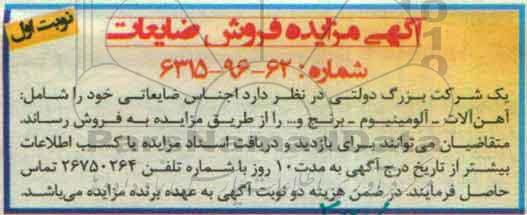 نوبت اول
آگهی مزایده فروش ضایعات
شماره: ۶۲-۹۶-۶۳۱۵
یک شرکت بزرگ دولتی در نظر دارد اجناس ضایعاتی خود را شامل:
آهن‌آلات - آلومینیوم - برنج و... را از طریق مزایده به فروش رساند.
متقاضیان می‌توانند برای بازدید و دریافت اسناد مزایده یا کسب اطلاعات
بیشتر از تاریخ درج آگهی به مدت ۱۰ روز با شماره تلفن ۲۶۷۵۰۲۶۴ تماس
حاصل فرمایند. در ضمن هزینه دو نوبت آگهی به عهده برنده مزایده می‌باشد.